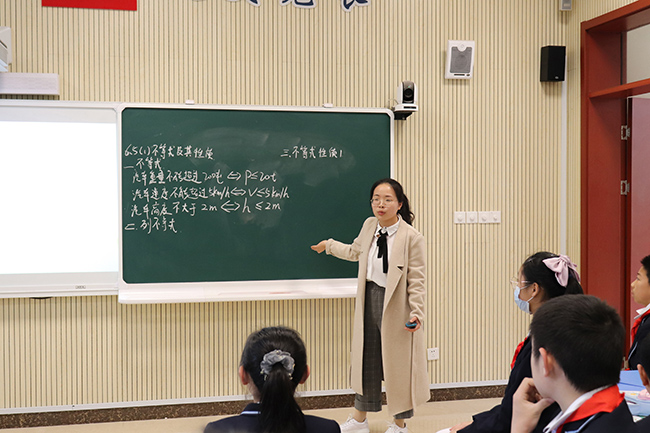 6.5(1)不等式及其性质
一.不等式
汽车重量不能超过20t ⇔ P≤20t
汽车速度不能超过5km/h ⇔ V≤5km/h
汽车高度不大于2m ⇔ h≤2m
二.列不等式
三.不等式性质1